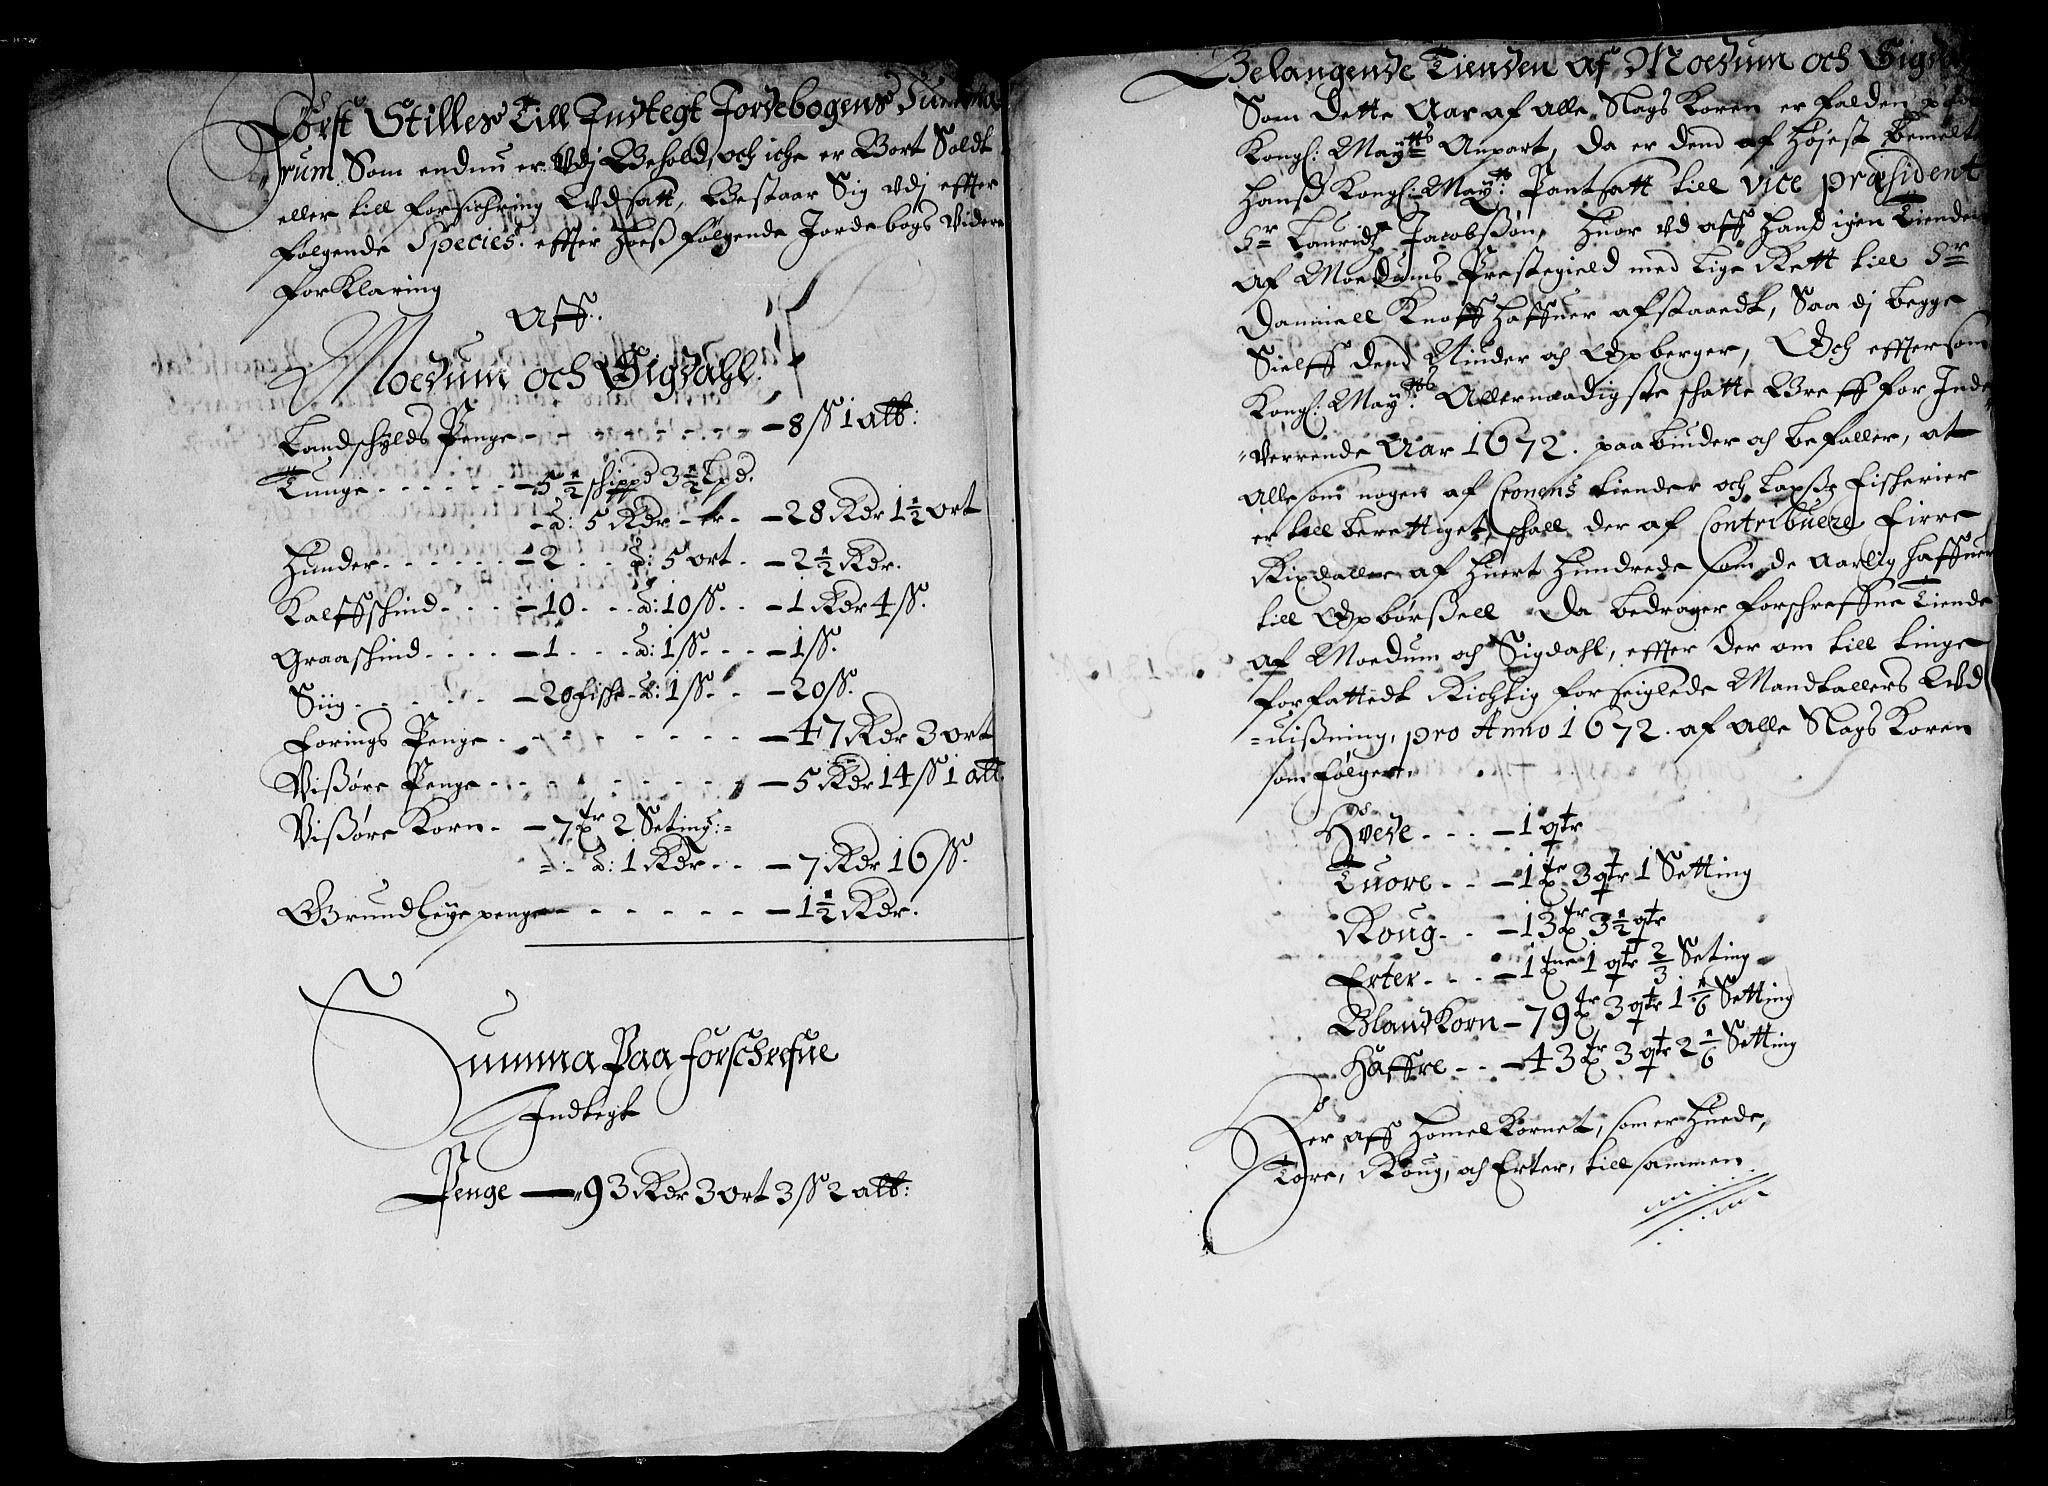 Först Stilles Till Indtegt Jordebogens Summa
rum Som endnu er Vdj Behold, och iche er Bort Soldt
eller till forsichring Vdsatt, Bestaar Sig vdj effter
følgende Species. effter hoes følgende Jordebogs Videre
forklaring
Aff.
Moedum och Sigdahl.
Landschylds Penge - 8 ß 1 alb:
Tunge - 5½ schippd 3½ Lpd.
a: 5 Rdr - er - 28 Rdr 1½ ort
Huder - 2 - a: 5 ort - 2½ Rdr.
Kalffschind - 10 - a: 10 ß - 1 Rdr 4 ß.
Graaschind - 1 - a: 1 ß - 1 ß.
Siig - 20 fische - a: 1 ß - 20 ß.
Forings Penge - 47 Rdr 3 ort
Vißøre Penge - 5 Rdr 14 ß 1 alb.
Vißøre Korn - 7 tr 2 Seting:
a: 1 Rdr - 7 Rdr 16 ß.
Grundleye penge - 1½ Rdr.
Summa Paa forschrefne
Indtegt
Penge - 93 Rdr 3 ort 3 ß 2 alb:
Belangende Tienden af Moedum och Sigda
Som dette Aar af alle Slags Koren er falden paa
Kongl: Maytts Anpart, da er dend af Høiest bemelte
Hanß Kongl: Maytt: Pantsatt till vice præsident
Hr Lauridz Jacobßøn, Huor vd aff Hand igen Tienden
af Moedums Prestegield med lige Rett till Hr
Daniell Knoff haffuer afstaaedt, Saa dj begge
Sielff dend Niuder och Opberger, Och effter som
Kongl: Maytts Allernaadigste schatte Breff for Inde
=Verrende Aar 1672. paabiuder och befaller, at
alle som nogen af Cronens tiender och Laxße fischerier
er till berettiget, schall der af Contribuere Firre
Rixdaller af huert Hundrede som de Aarlig haffuer
till Opbørßell Da bedrager forschreffne Tiende
af Moedum och Sigdahl, effter der om till tinge
forfattedt Richtig forseiglede Mandtallers Vd
=uißning, pro Anno 1672. af alle Slags Koren
som følger.
Hvede - 1 qtr
Tuore - 1 tr 3 qtr 1 Setting
Roug - 13 tr 3½ qtr
Erter - 1 tne 1 qtr 2/3 Seting
Blandkorn - 79 tr 3 qtr 1 1/6 Setting
Haffre - 43 tr 3 qtr 2 1/6 Setting
Der aff Homel Kornet, som er Huede,
Tore, Roug, och Erter, till sammen